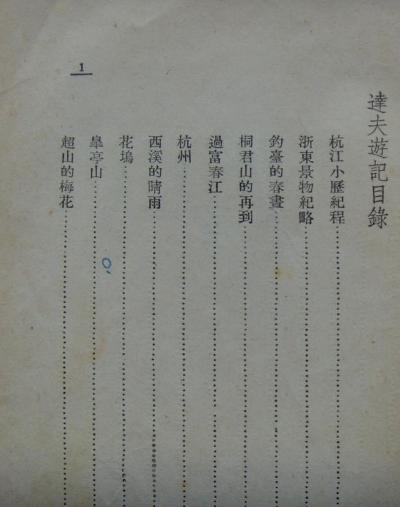 達夫遊記目錄
杭江小歷紀程
浙東景物紀略
釣臺的春晝
桐君山的再到
過富春江
杭州
西溪的晴雨
花塢
皋亭山
超山的梅花
1